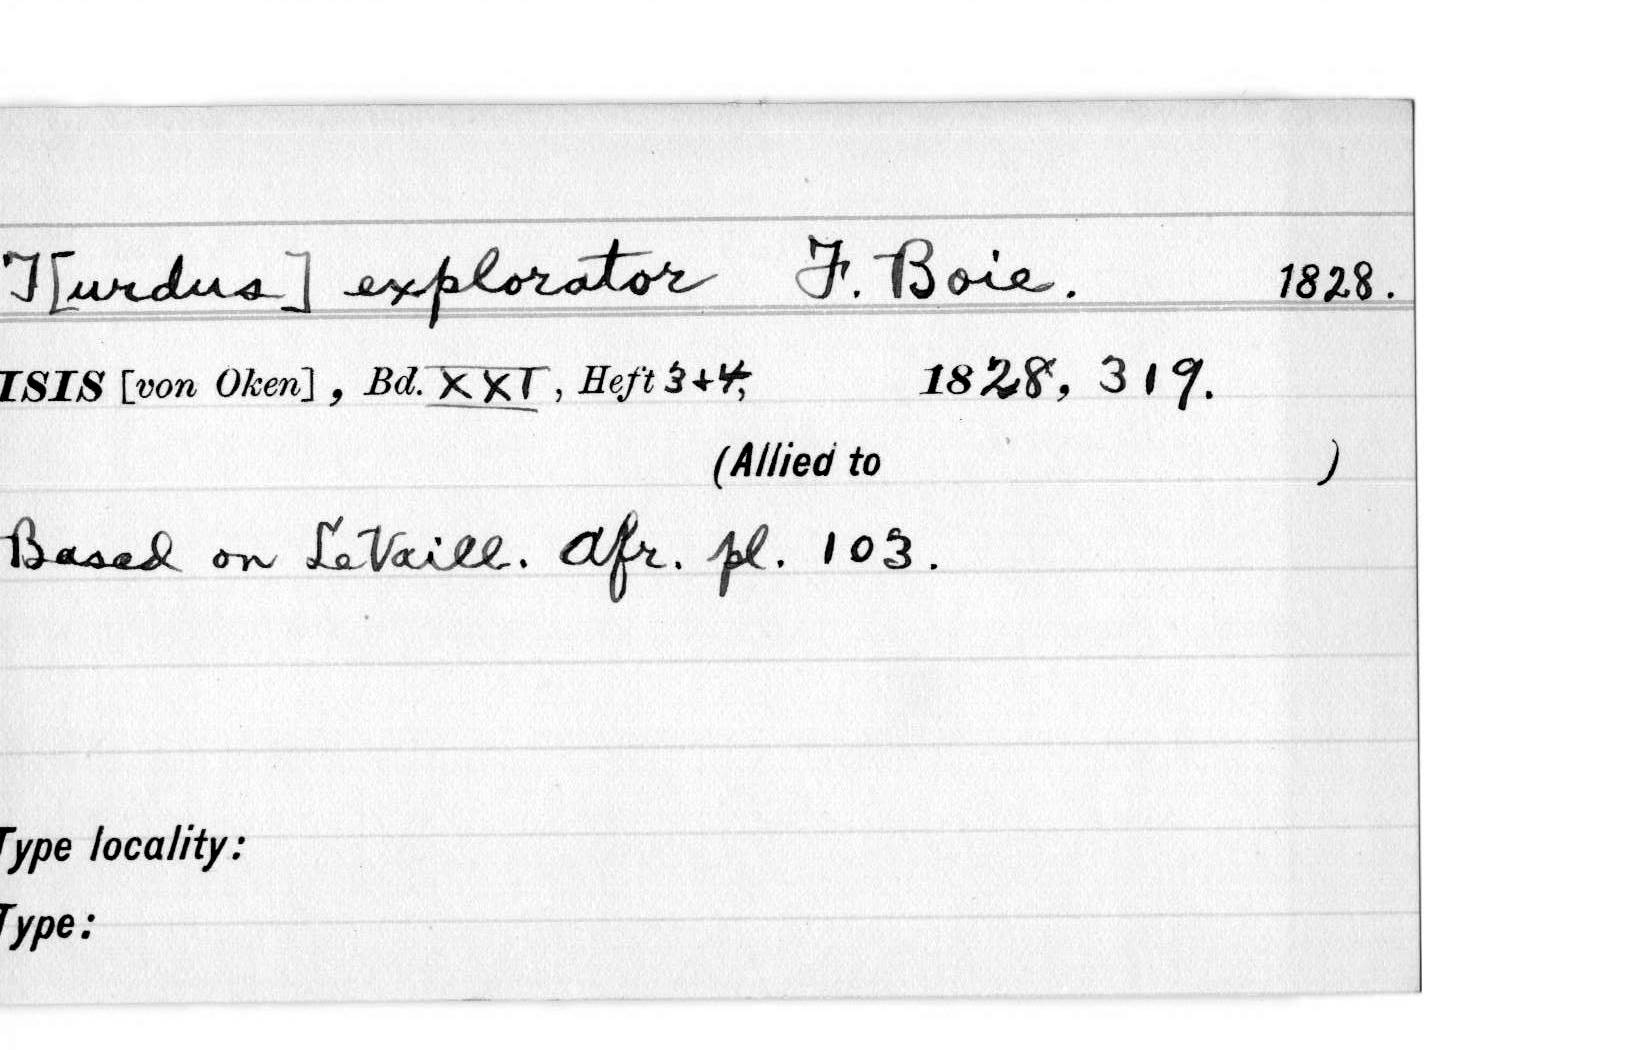 T[urdus] explorator F. Boie. 1828.
ISIS [von Oken], Bd. XXI, Heft 3+4, 1828, 319.
(Allied to )
Based on LeVaill. Afr. pl. 103.
Type locality:
Type: